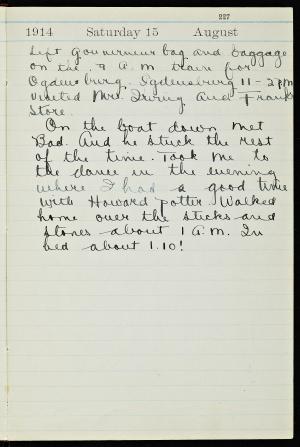 227
1914 Saturday 15 August
Left Gouverneur bag and baggage
on the 7 A.M train for
Ogdensburg. Ogdensburg 11-2 P.M
visited Mrs. Irving and Frank
Store.
On the boat down met
Bad. And he stuck the rest
of the time. Took me to
the dance in the evening
where I had a good time
with Howard Potter. Walked
home over the sticks and
stones about 1 A.M. In
bed about 1.10!